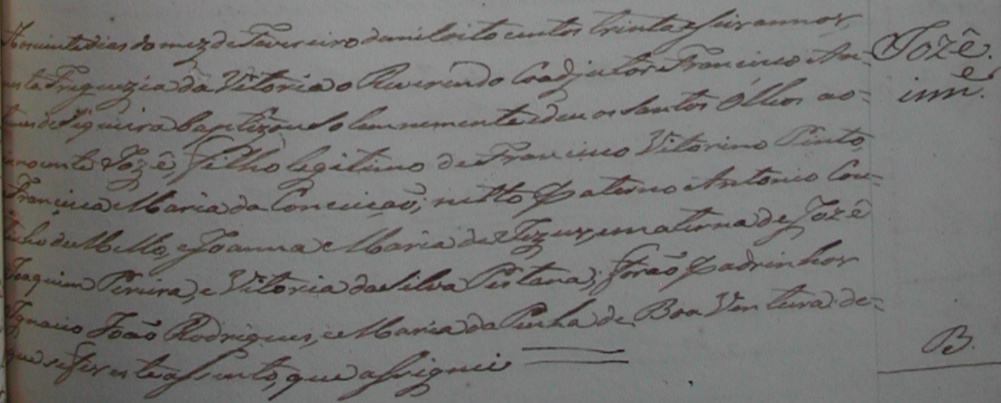 Aos vinte dias do mez de Fevereiro de mil oito centos trinta e seis annos,
nesta Freguezia da Vitoria o Reverendo Coadjutor Francisco An-
tunes de Siqueira baptizou Solemnemente e deu os Santos Olhos ao
innocente Jozê, filho legitimo de Francisco Vitorino Pinto
Francisca Maria da Conceição; netto paterno Antonio Cou-
tinho de Mello, e Joanna Maria de Jezus, e materna de Jozê
Joaquim Pereira, e Vitoria da Silva Pestana; forão padrinhos
Ignacio João Rodrigues, e Maria da Penha de Boa Ventura: de
que se fez este assento, que assignei
Jozê.
inn.e
B.